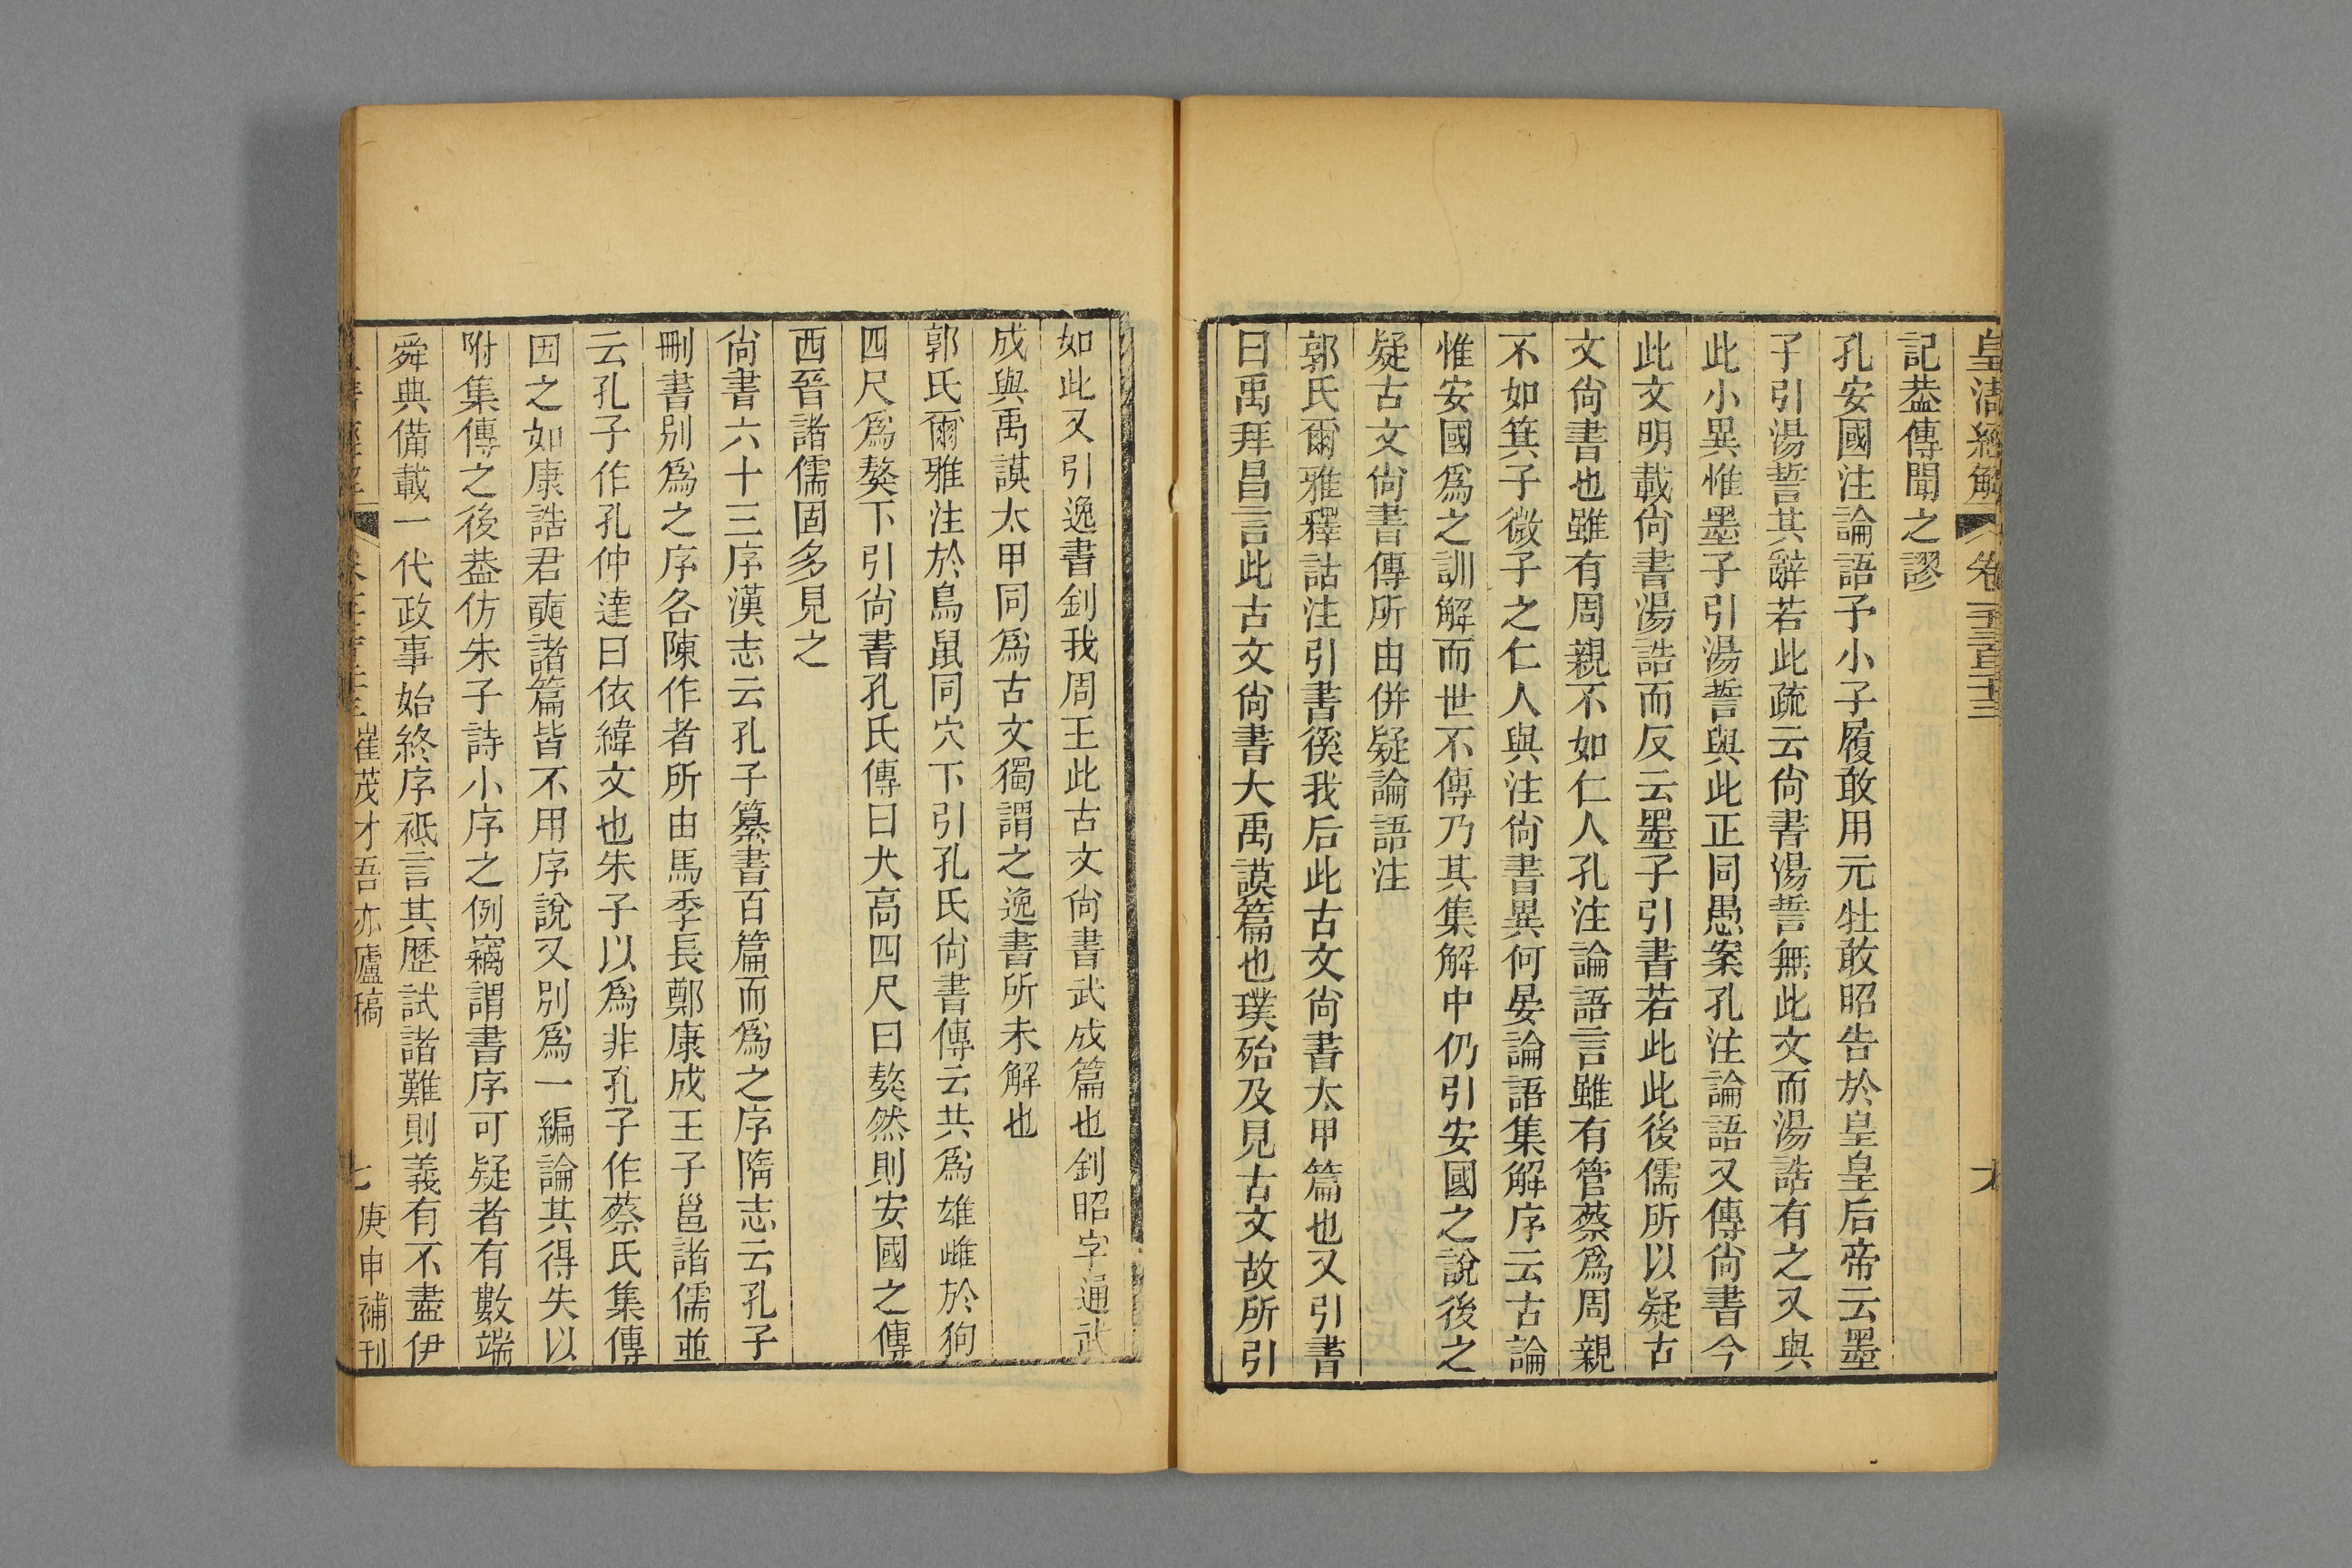 皇清經解
卷
記葢傳聞之謬
孔安國注論語予小子履敢用元牡敢昭告於皇皇后帝云墨
子引湯誓其辭若此疏云尙書湯誓無此文而湯誥有之又與
此小異惟墨子引湯誓與此正同愚案孔注論語又傳尙書今
此文明載尙書湯誥而反云墨子引書若此此後儒所以疑古
文尙書也雖有周親不如仁人孔注論語言雖有管蔡爲周親
不如箕子微子之仁人與注尙書異何晏論語集解序云古論
惟安國爲之訓解而世不傳乃其集解中仍引安國之說後之
疑古文尙書傳所由併疑論語注
郭氏爾雅釋詁注引書徯我后此古文尙書太甲篇也又引書
曰禹拜昌言此古文尙書大禹謨篇也璞殆及見古文故所引
如此又引逸書釗我周王此古文尙書武成篇也釗昭字通武
成與禹謨太甲同爲古文獨謂之逸書所未解也
郭氏爾雅注於鳥鼠同穴下引孔氏尙書傳云共爲雄雌於狗
四尺爲獒下引尙書孔氏傳曰犬高四尺曰獒然則安國之傳
西晉諸儒固多見之
尙書六十三序漢志云孔子纂書百篇而爲之序隋志云孔子
刪書別爲之序各陳作者所由馬季長鄭康成王子邕諸儒並
云孔子作孔仲達曰依緯文也朱子以爲非孔子作蔡氏集傳
因之如康誥君奭諸篇皆不用序說又別爲一編論其得失以
附集傳之後葢仿朱子詩小序之例竊謂書序可疑者有數端
舜典備載一代政事始終序祗言其歷試諸難則義有不盡伊
崔茂才吾亦廬稿
庚申補刊